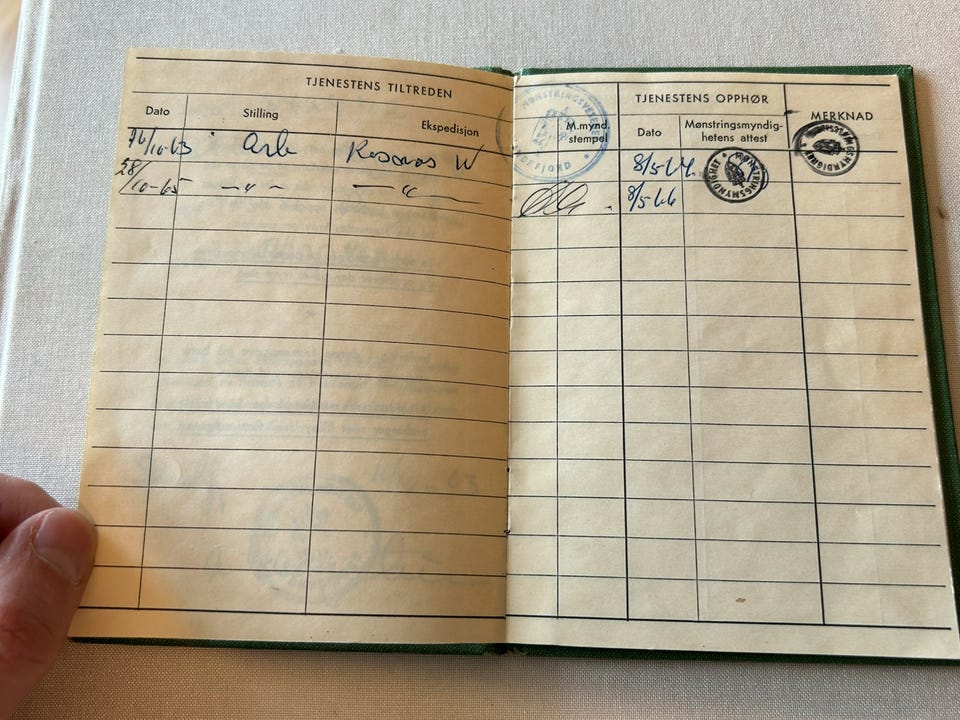 TJENESTENS TILTREDEN
Dato Stilling Ekspedisjon
/10-63 Arb Kosmos IV
28/10-65 —〃— —〃—
TJENESTENS OPPHØR
M.mynd. stempel Dato Mønstringsmyndig-hetens attest MERKNAD
8/5-64.
8/5-66
MØNSTRINGSVESENET
DEFJORD
MØNSTRINGSMYNDIGHET